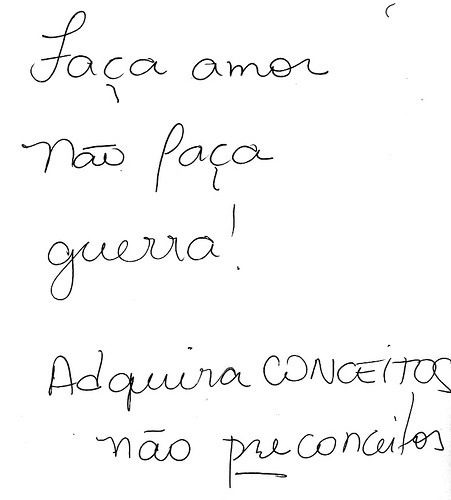 Faça amor
não faça
guerra!
Adquira CONCEITOS
não preconceitos